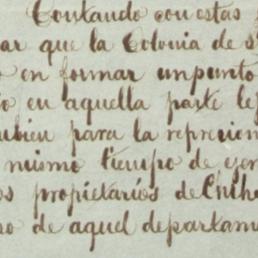 Contando con estas
ar que la Colonia de
en formar un punto
en aquella parte le
bien para la represion
mismo tiempo de
os propietarios de Chihe
o de aquel departam